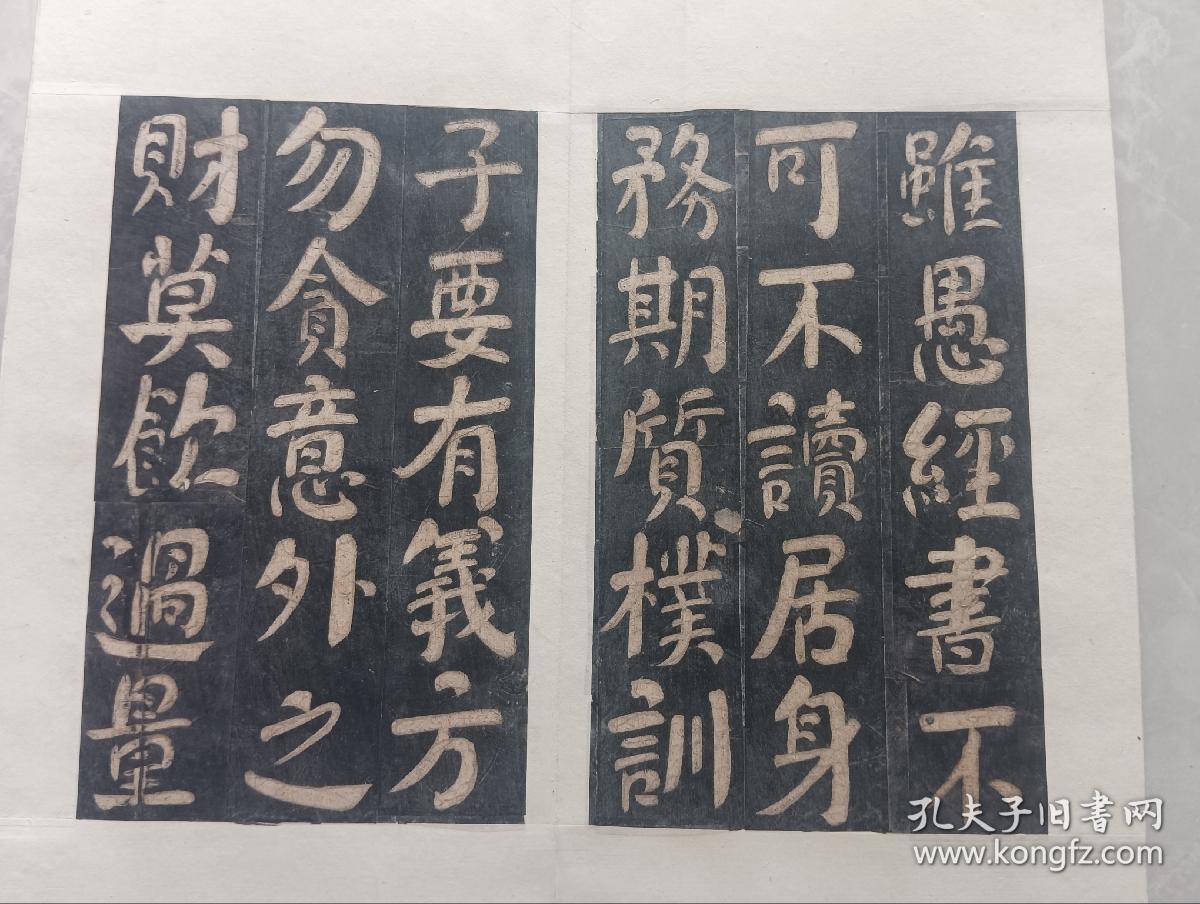 雖愚經書不
可不讀居身
務期質樸訓
子要有義方
勿貪意外之
財莫飲過量
孔夫子旧书网
www.kongfz.com